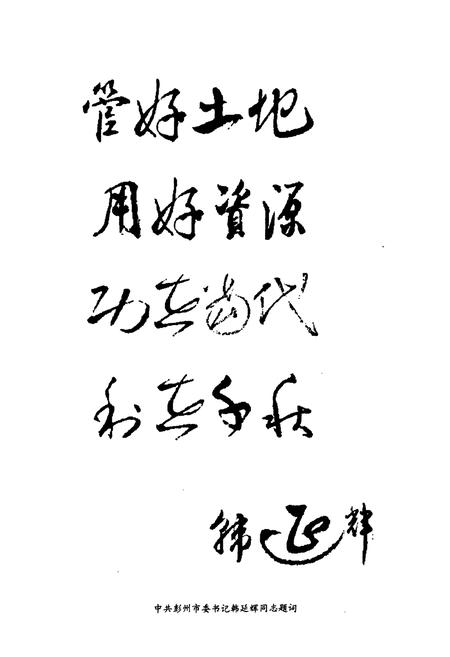 管好土地
用好資源
功在當代
利在千秋
韩延辉
中共彭州市委书记韩延辉同志题词